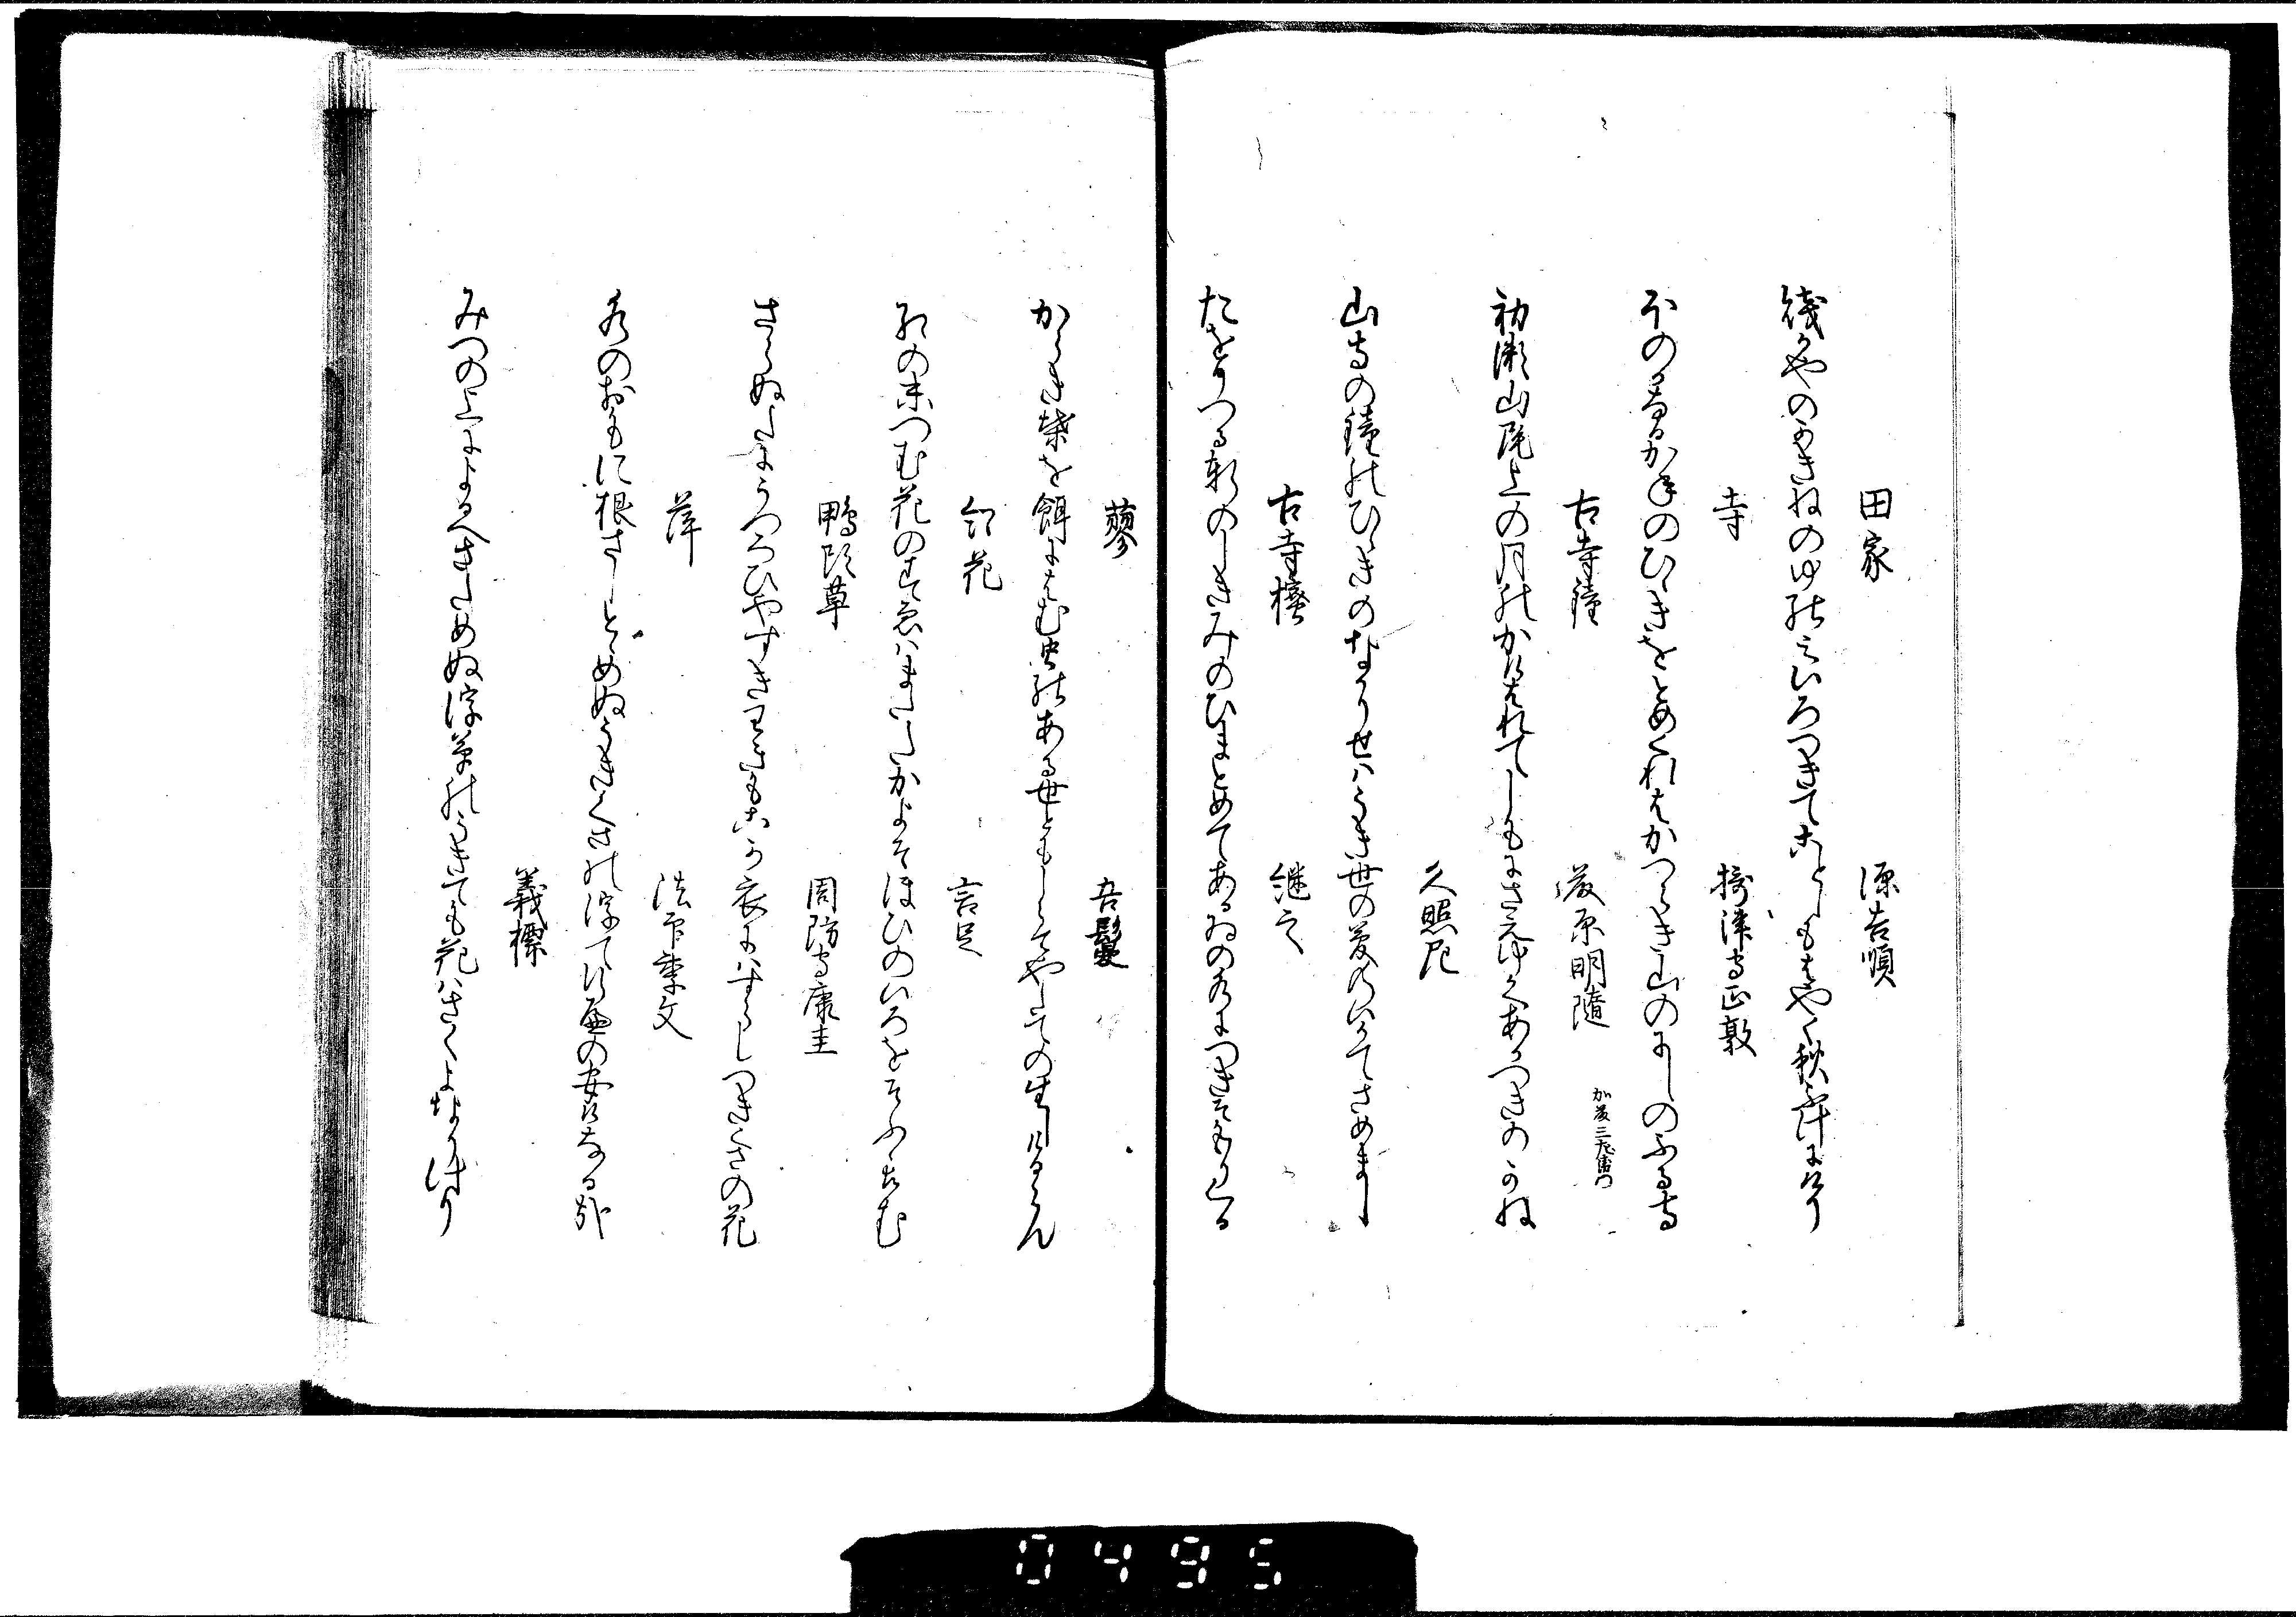 田家　源吉順
賤かやのかきねのゆふひいろつきてことしもはやく秋ふけにけり
寺　摂津守正敦
ほのみるかねのひゝきをとめくれはかつらき山のにしのふる寺
古寺鐘　藤原明随　加藤三左衛門
初瀬山尾上の月のかけはれてしもにさえゆくあかつきのかね
久照尼
山寺の鐘のひゝきのなかりせはうき世の夢のいかてさめまし
古寺樒　継之
たをりつる軒のしきみのひまとめてあるゐの水につきそ
蓼　吾鬘
からき葉を餌にはむ虫のあるよともしらてやたての生しけるらん
紅花　言足
紅の末つむ花のすゑはまたたかよそほひのいろをそふらむ
鴨頭草　周防守康圭
さらぬたにうつろひやすきわきもこか衣にはすらしつきくさの花
萍　法印季文
水のおもに根さしとゝめぬうきくさの浮てけふの安けなる哉
義標
みつの上によるへさためぬ浮草のうきても花はさくよなりけり
0495